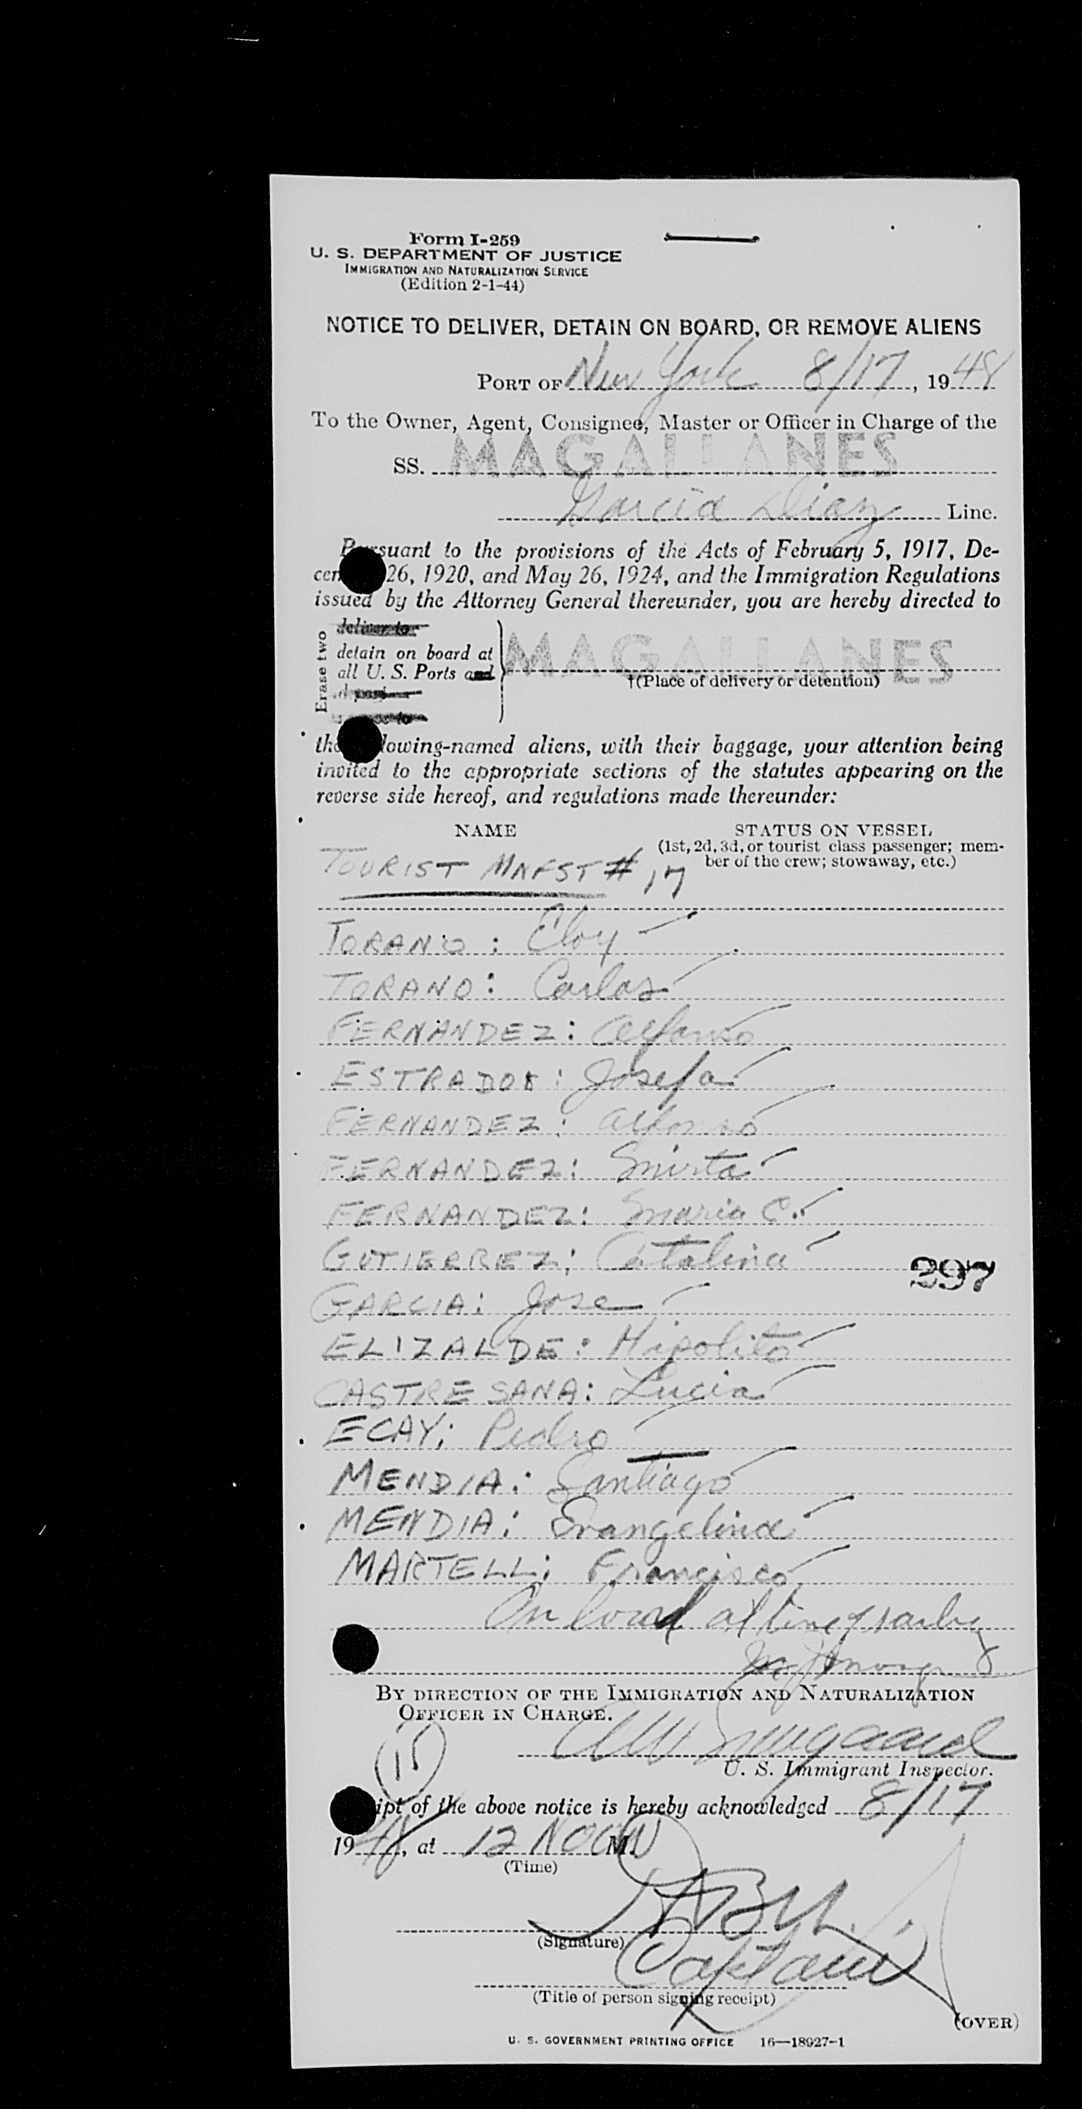 Form I-259
U. S. DEPARTMENT OF JUSTICE
IMMIGRATION AND NATURALIZATION SERVICE
(Edition 2-1-44)
NOTICE TO DELIVER, DETAIN ON BOARD, OR REMOVE ALIENS
PORT OF New York 8/17, 1948
To the Owner, Agent, Consignee, Master or Officer in Charge of the
SS. MAGALLANES
Garcia Diaz Line.
Pursuant to the provisions of the Acts of February 5, 1917, De-
cem 26, 1920, and May 26, 1924, and the Immigration Regulations
issued by the Attorney General thereunder, you are hereby directed to
Erase two
deliver to
detain on board at
all U. S. Ports and
MAGALLANES
†(Place of delivery or detention)
the lowing-named aliens, with their baggage, your attention being
invited to the appropriate sections of the statutes appearing on the
reverse side hereof, and regulations made thereunder:
NAME STATUS ON VESSEL
(1st, 2d, 3d, or tourist class passenger; mem-
ber of the crew; stowaway, etc.)
TOURIST MNFST # 17
TORANO: Eloy
TORANO: Carlos
FERNANDEZ: Alfonso
ESTRADOR: Josefa
FERNANDEZ: Alfonso
FERNANDEZ: Mirta
FERNANDEZ: Maria C.
GUTIERREZ: Catalina
297
GARCIA: Jose
ELIZALDE: Hipolito
CASTRESANA: Lucia
ECAY: Pedro
MENDIA: Santiago
MENDIA: Evangelina
MARTELL: Francisco
On board at time of sailing
BY DIRECTION OF THE IMMIGRATION AND NATURALIZATION
OFFICER IN CHARGE.
(15)
U. S. Immigrant Inspector.
ipt of the above notice is hereby acknowledged 8/17
1948, at 12 NOON M.
(Time)
(Signature)
Captain
(Title of person signing receipt)
(OVER)
U. S. GOVERNMENT PRINTING OFFICE 16—18927-1